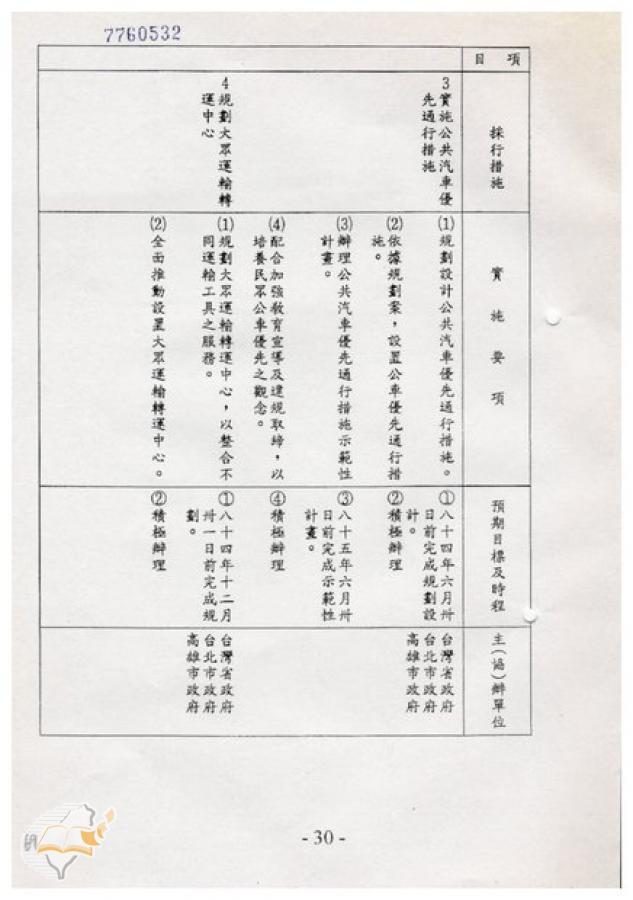 7760532
項目
採行措施
實施要項
預期目標及時程
主（協）辦單位
3實施公共汽車優
先通行措施
(1)規劃設計公共汽車優先通行措施。
(2)依據規劃案，設置公車優先通行措
施。
(3)辦理公共汽車優先通行措施示範性
計畫。
(4)配合加強教育宣導及違規取締，以
培養民眾公車優先之觀念。
①八十四年六月卅
日前完成規劃設
計。
②積極辦理
③八十五年六月卅
日前完成示範性
計畫。
④積極辦理
台灣省政府
台北市政府
高雄市政府
4規劃大眾運輸轉
運中心
(1)規劃大眾運輸轉運中心，以整合不
同運輸工具之服務。
(2)全面推動設置大眾運輸轉運中心。
①八十四年十二月
卅一日前完成規
劃。
②積極辦理
台灣省政府
台北市政府
高雄市政府
- 30 -